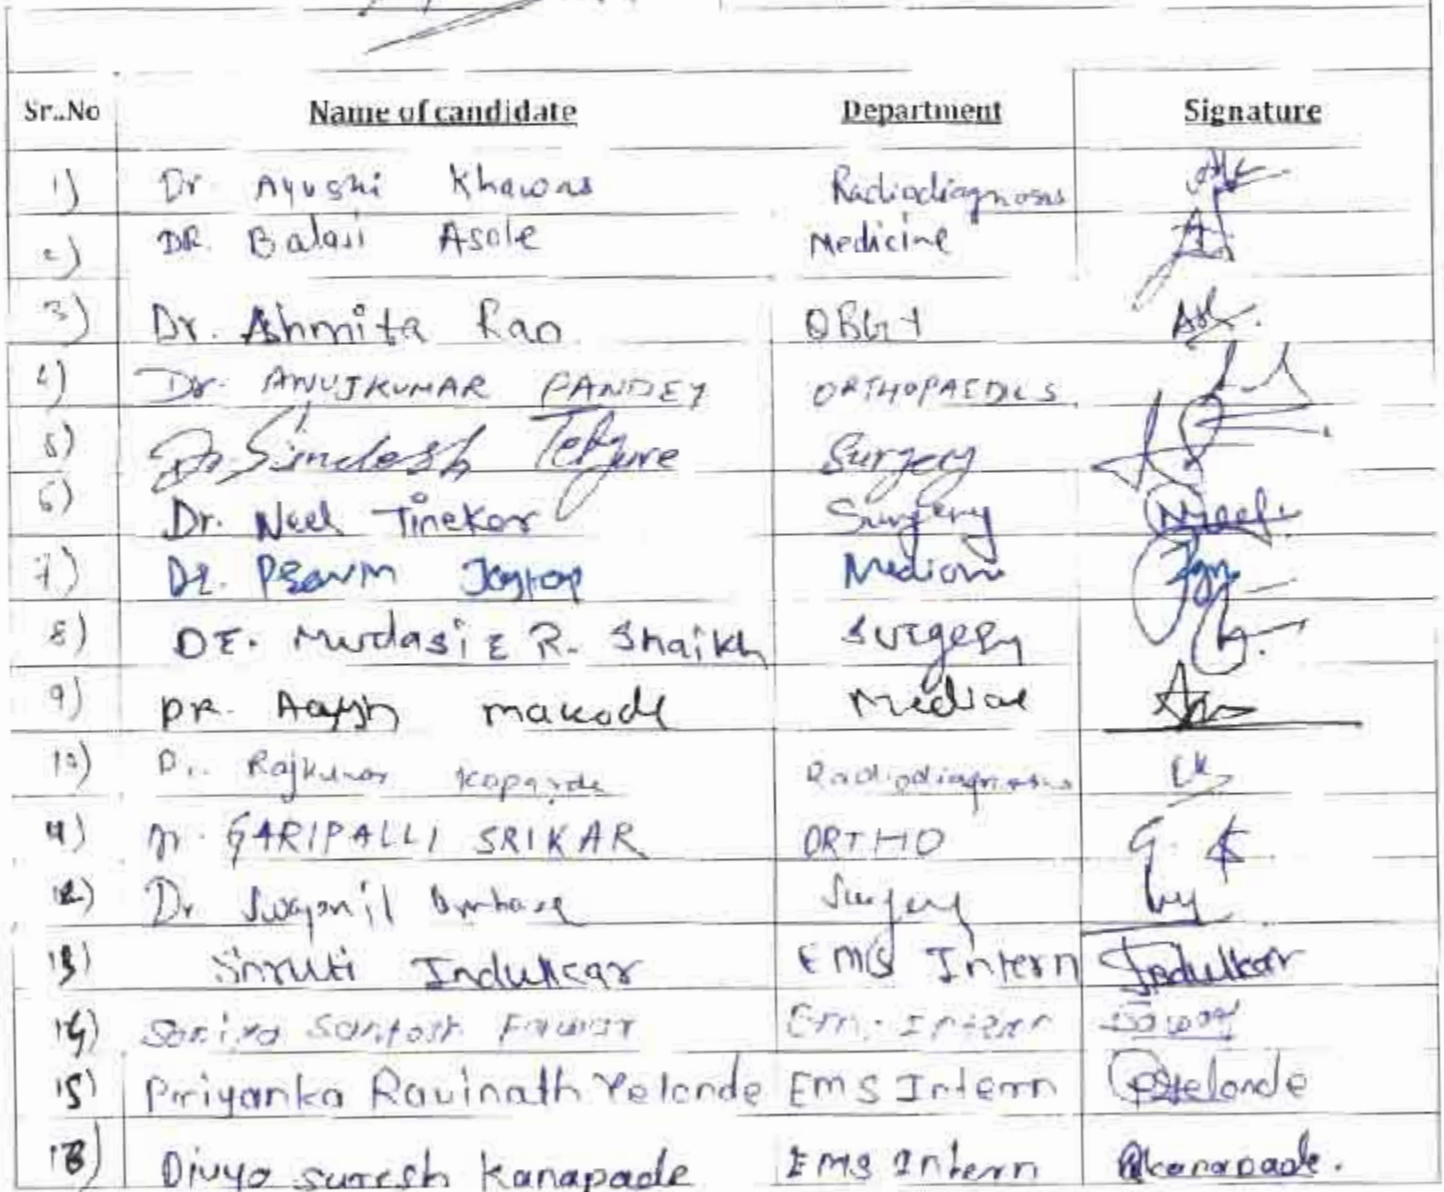 Sr..No Name of candidate Department Signature
1) Dr Ayushi Khawas Radiodiagnosis
2) DR. Balaji Asole Medicine
3) Dr. Ashmita Rao OBGY
4) Dr. ANUJKUMAR PANDEY ORTHOPAEDICS
5) Dr. Surgery
6) Dr. Neel Tinekar Surgery Neel
7) DR. Jagtap
8) DR. Mudasir R. Shaikh Surgery
9) DR. makode
10) Dr. Rajkumar Radiodiagnosis
11) Dr. GARIPALLI SRIKAR ORTHO G. S
12) Dr Swapnil Surgery
13) Shruti Indulkar EMS Intern Indulkar
14) Intern
15) Priyanka Ravinath Yelonde EMS Intern Yelonde
16) Divya suresh Kanapade EMS Intern Kanapade.